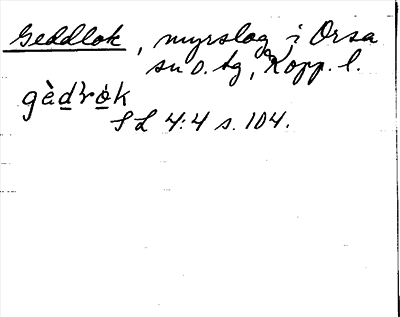 Geddlok, myrslog i Orsa
sn o. tg, Kopp. l.
gàd̲'ro̲k
SL 4:4 s. 104.